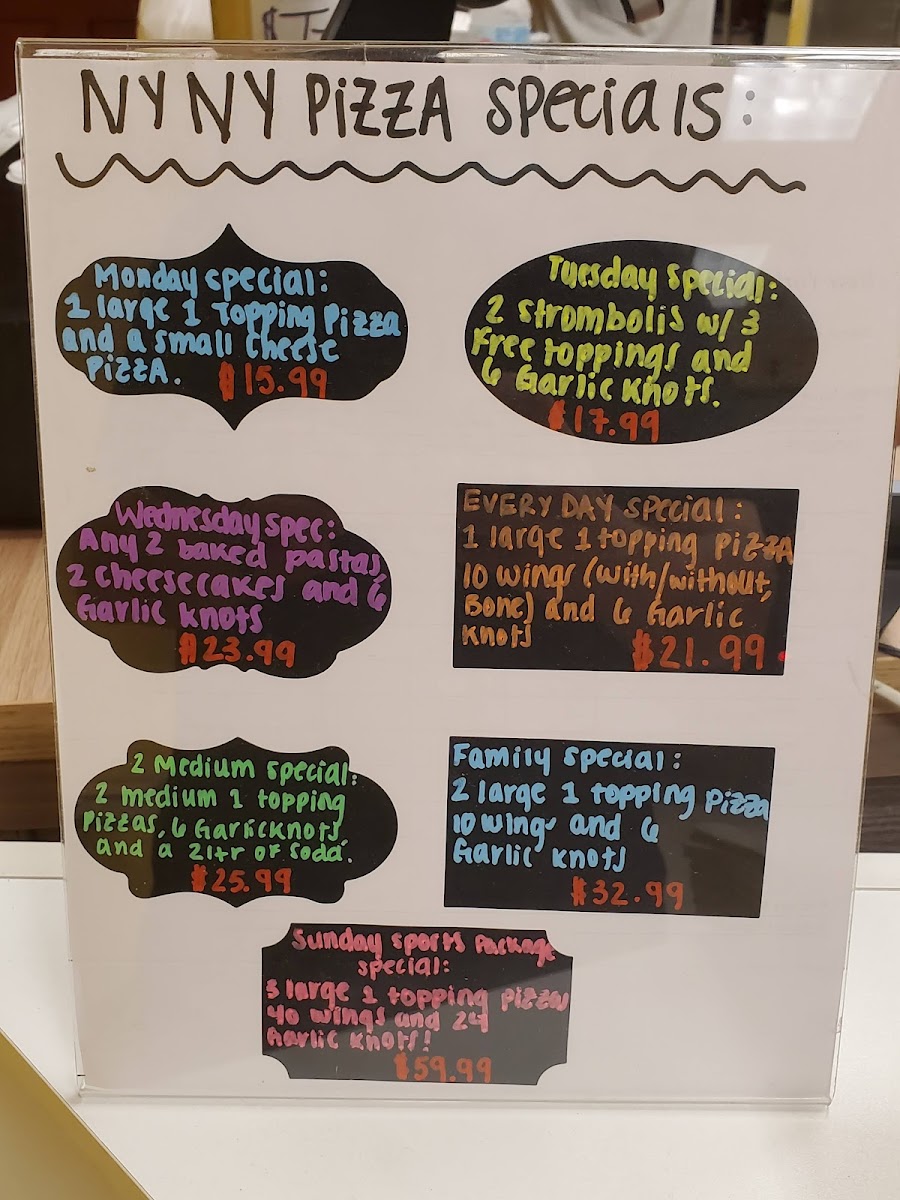 NY NY PiZZA specials:
Monday special:
1 large 1 Topping Pizza
and a small cheese
PizzA.
$15.99
Tuesday special:
2 strombolis w/ 3
Free toppings and
6 Garlic Knots.
$17.99
Wednesday spec:
Any 2 baked pastas,
2 cheesecakes and 6
Garlic knots
$23.99
EVERY DAY special:
1 large 1 topping pizza
10 wings (with/without,
Bone) and 6 Garlic
knots
$21.99
2 Medium special:
2 medium 1 topping
Pizzas, 6 Garlicknots
and a 2ltr of soda.
$25.99
Family special:
2 large 1 topping pizza
10 wings and 6
Garlic knots
$32.99
Sunday sports package
special:
3 large 1 topping pizzas
40 wings and 24
Garlic knots!
$59.99